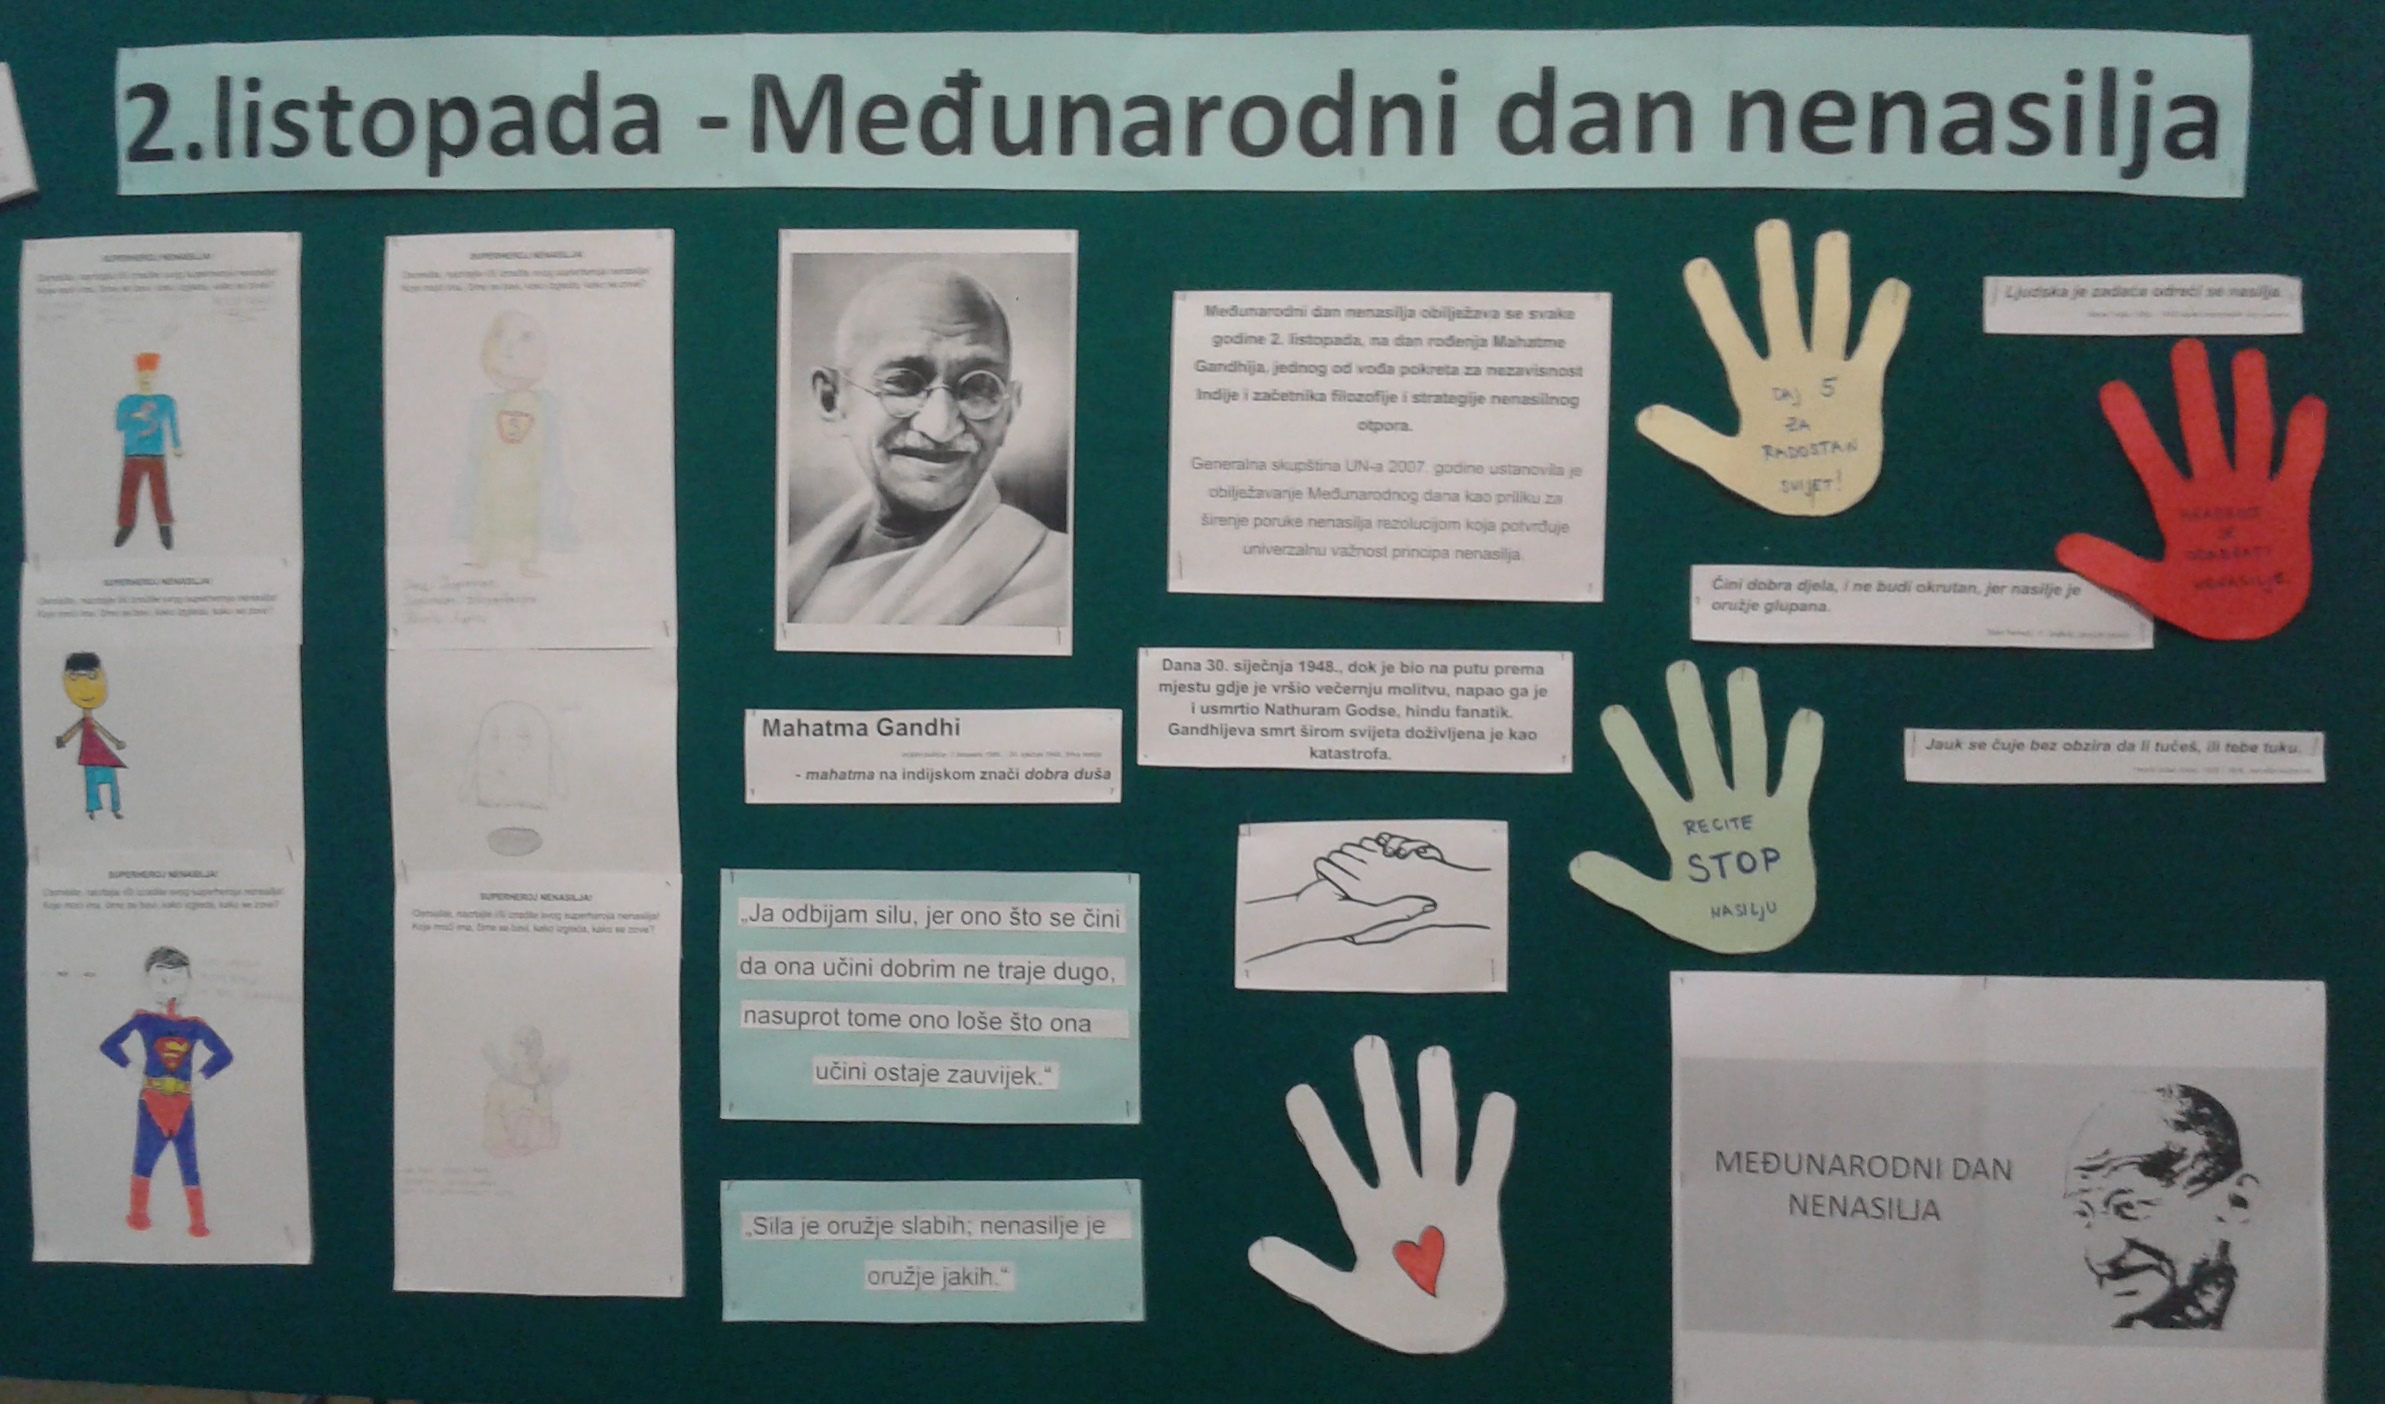 2.listopada - Međunarodni dan nenasilja
SUPERHEROJ NENASILJA!
SUPERHEROJ NENASILJA!
SUPERHEROJ NENASILJA!
SUPERHEROJ NENASILJA!
SUPERHEROJ NENASILJA!
Osmislite, nacrtajte i/ili izradite svog superheroja nenasilja!
Koje moći ima, čime se bavi, kako izgleda, kako se zove?
Mahatma Gandhi
- mahatma na indijskom znači dobra duša
„Ja odbijam silu, jer ono što se čini
da ona učini dobrim ne traje dugo,
nasuprot tome ono loše što ona
učini ostaje zauvijek.“
„Sila je oružje slabih; nenasilje je
oružje jakih.“
Međunarodni dan nenasilja obilježava se svake
godine 2. listopada, na dan rođenja Mahatme
Gandhija, jednog od vođa pokreta za nezavisnost
Indije i začetnika filozofije i strategije nenasilnog
otpora.
Generalna skupština UN-a 2007. godine ustanovila je
obilježavanje Međunarodnog dana kao priliku za
širenje poruke nenasilja rezolucijom koja potvrđuje
univerzalnu važnost principa nenasilja.
Dana 30. siječnja 1948., dok je bio na putu prema
mjestu gdje je vršio večernju molitvu, napao ga je
i usmrtio Nathuram Godse, hindu fanatik.
Gandhijeva smrt širom svijeta doživljena je kao
katastrofa.
DAJ 5
ZA
RADOSTAN
SVIJET!
Ljudska je zadaća odreći se nasilja.
JE
ODABRATI
NENASILJE
Čini dobra djela, i ne budi okrutan, jer nasilje je
oružje glupana.
RECITE
STOP
NASILJU
Jauk se čuje bez obzira da li tučeš, ili tebe tuku.
MEĐUNARODNI DAN
NENASILJA